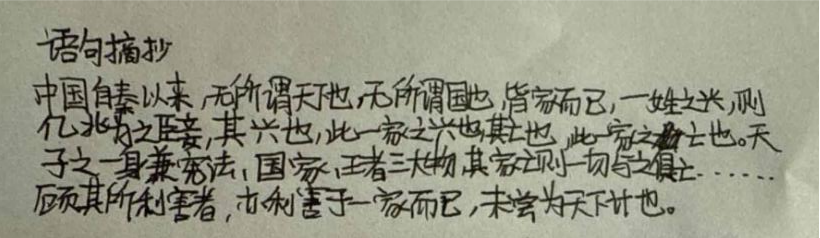 语句摘抄
中国自秦以来,无所谓天下也,无所谓国也,皆家而已,一姓之兴,则
亿兆为之臣妾,其兴也,此一家之兴也,其亡也,此一家之亡也。天
子之一身兼宪法、国家、王者三大物,其家亡则一切与之俱亡……
顾其所利害者,亦利害于一家而已,未尝为天下计也。